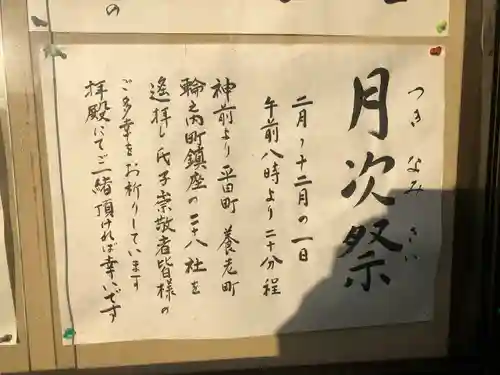 月次祭
つきなみさい
二月〜十二月の一日
午前八時より二十分程
神前より平田町養老町
輪之内町鎮座の二十八社を
遙拝し氏子崇敬者皆様の
ご多幸をお祈りしています
拝殿にてご一緒頂ければ幸いです
の